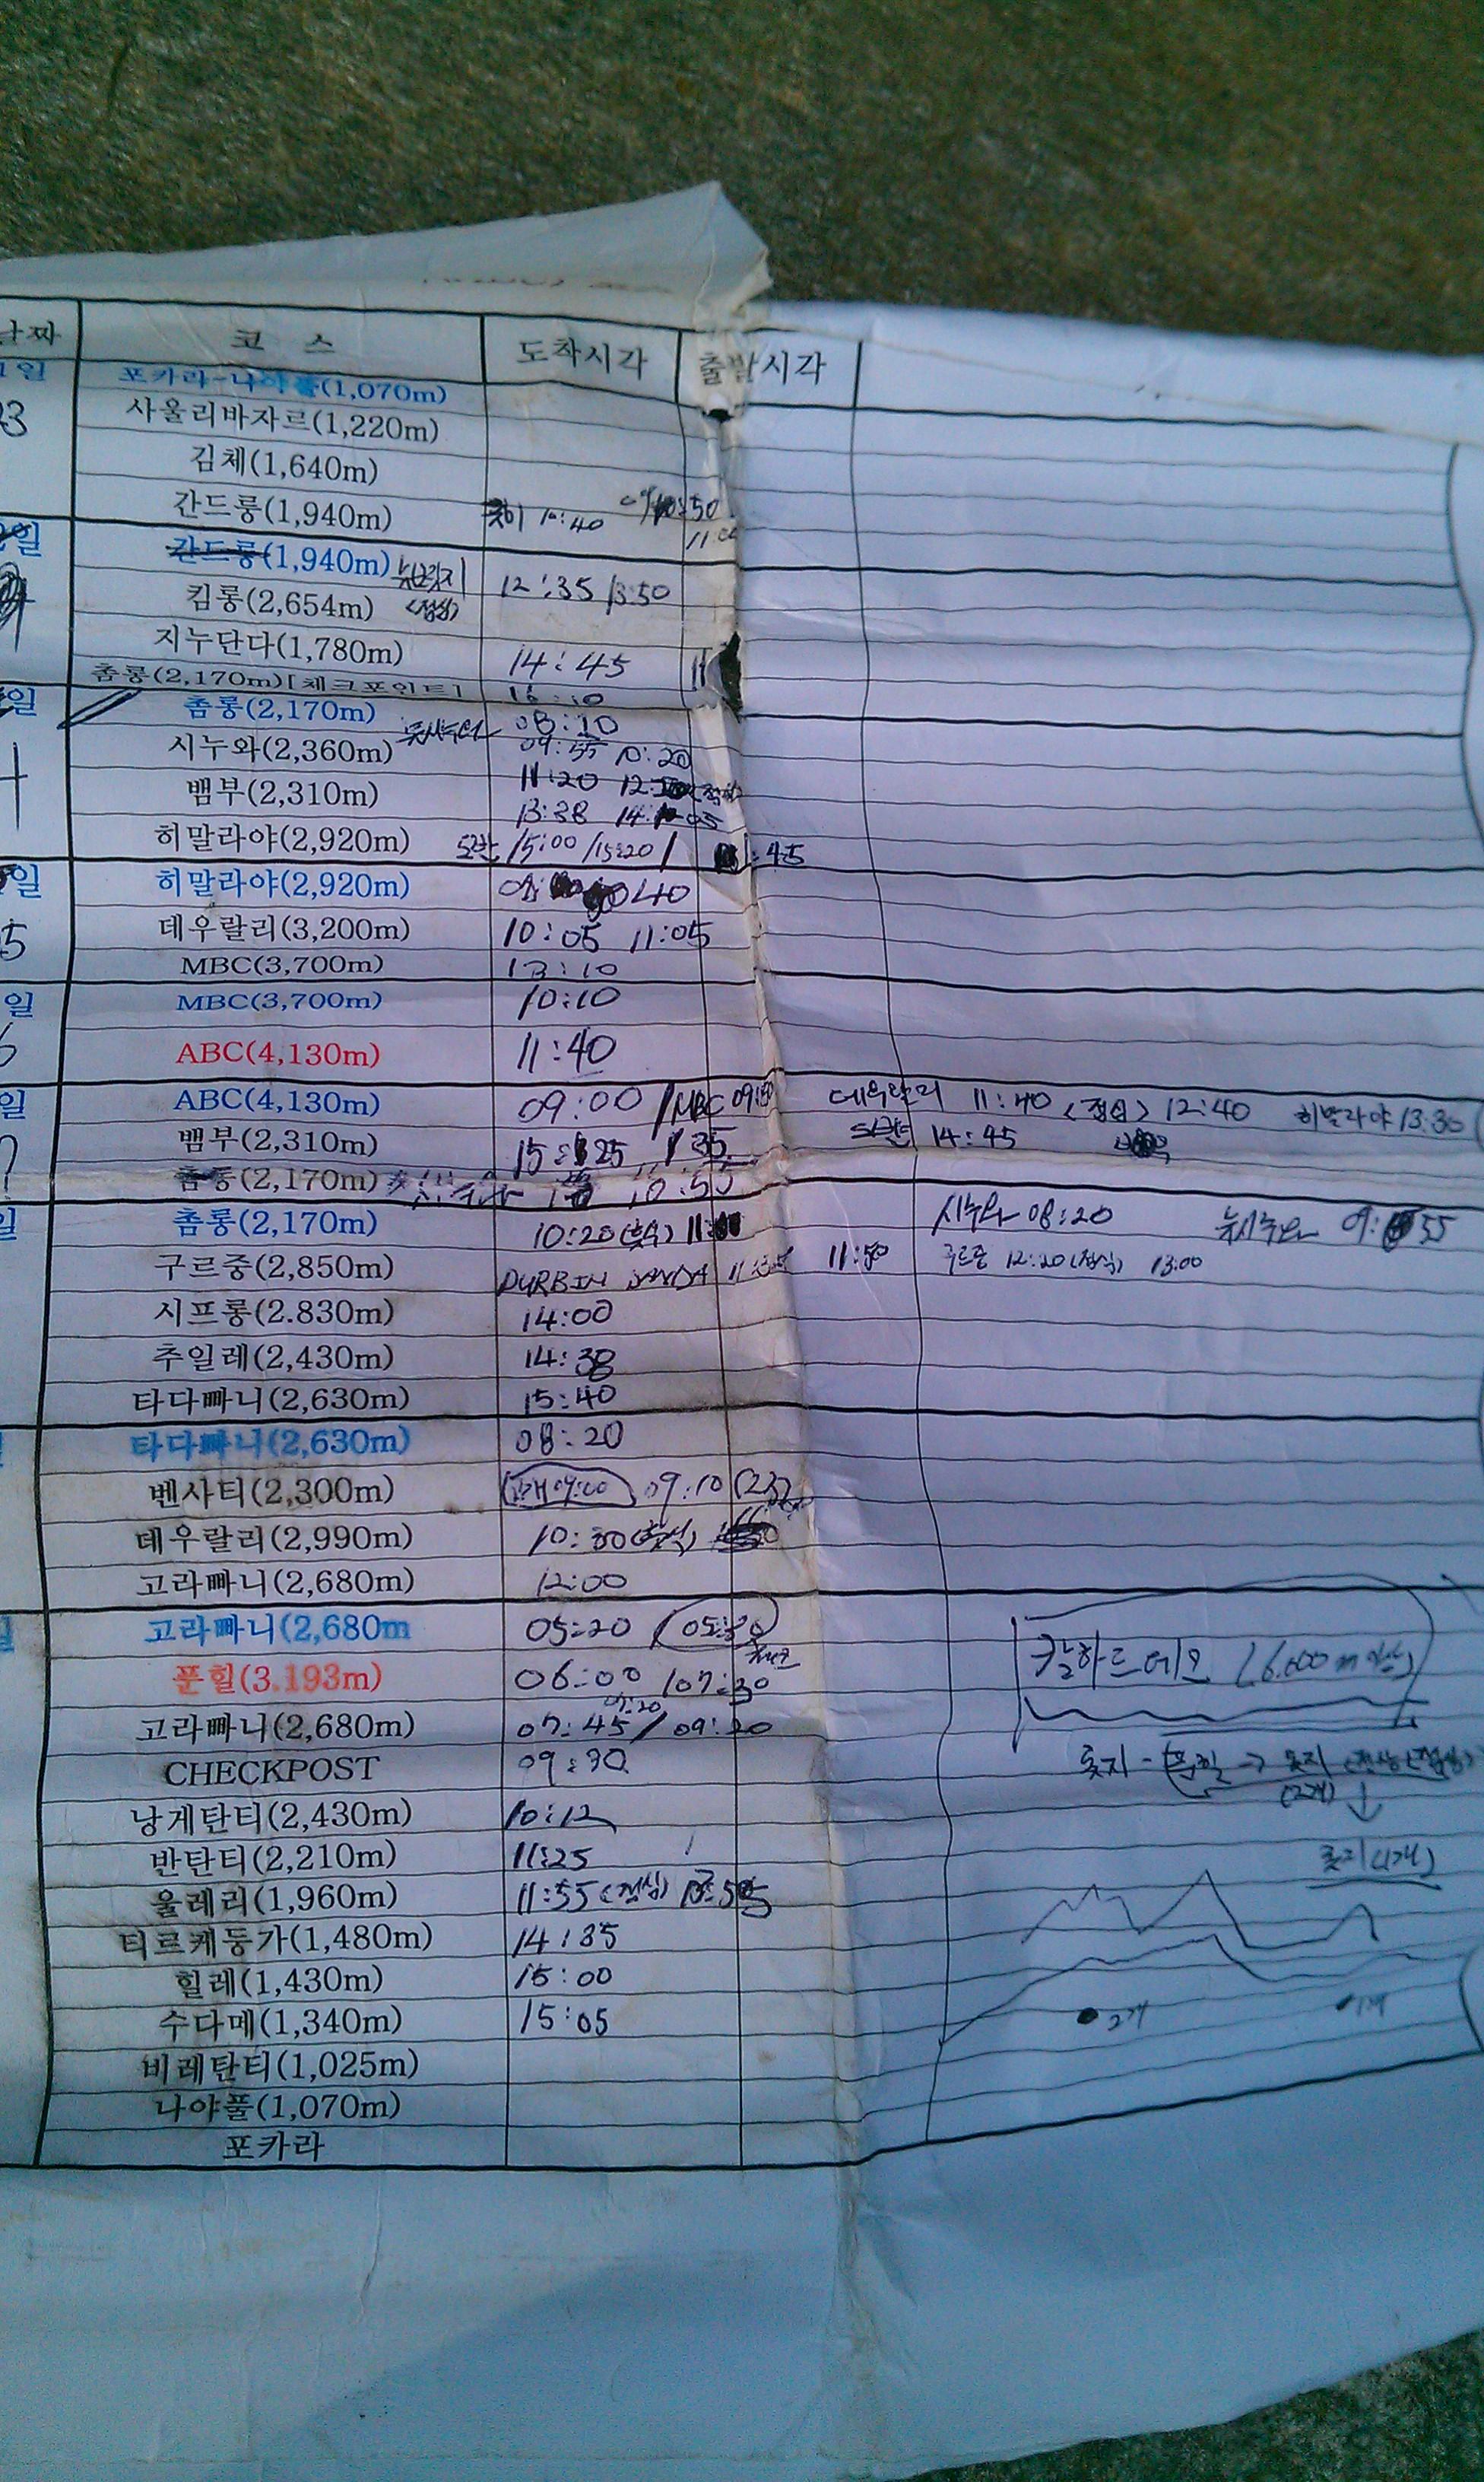 코 스 도착시각 출발시각
1일 포카라-나야풀(1,070m)
사울리바자르(1,220m)
김체(1,640m)
간드룽(1,940m) 10:40
일 간드룽(1,940m)
킴롱(2,654m) (점심) 12:35 13:50
지누단다(1,780m) 14:45
촘롱(2,170m)[체크포인트] 16:10
일 촘롱(2,170m) 08:10
시누와(2,360m) 09:55 10:20
뱀부(2,310m) 11:20
13:38
히말라야(2,920m) 도반 15:00 /15:20/ :45
일 히말라야(2,920m) 40
5 데우랄리(3,200m) 10:05 11:05
MBC(3,700m) 13:10
일 MBC(3,700m) 10:10
ABC(4,130m) 11:40
일 ABC(4,130m) 09:00 /MBC 데우랄리 11:40 (점심) 12:40 히말라야 13:30
뱀부(2,310m) 15:25 /35 도반 14:45
촘롱(2,170m)
일 촘롱(2,170m) 10:20 시누와 08:20 뉴시누와 09:55
구르중(2,850m) DURBIN DANDA 11:50 구르중 12:20(점심) 13:00
시프롱(2.830m) 14:00
추일레(2,430m) 14:38
타다빠니(2,630m) 15:40
타다빠니(2,630m) 08:20
벤사티(2,300m) 09:10
데우랄리(2,990m) 10:30
고라빠니(2,680m) 12:00
고라빠니(2,680m 05:20 / 05:30
푼힐(3.193m) 06:00 /07:30
고라빠니(2,680m) 07:45 / 09:20
CHECKPOST 09:30
낭게탄티(2,430m) 10:12
반탄티(2,210m) 11:25
울레리(1,960m) 11:55 (점심)
티르케둥가(1,480m) 14:35
힐레(1,430m) 15:00
수다메(1,340m) 15:05
비레탄티(1,025m)
나야풀(1,070m)
포카라
롯지 - 푼힐 → 롯지
(2개)
롯지(1개)
2개